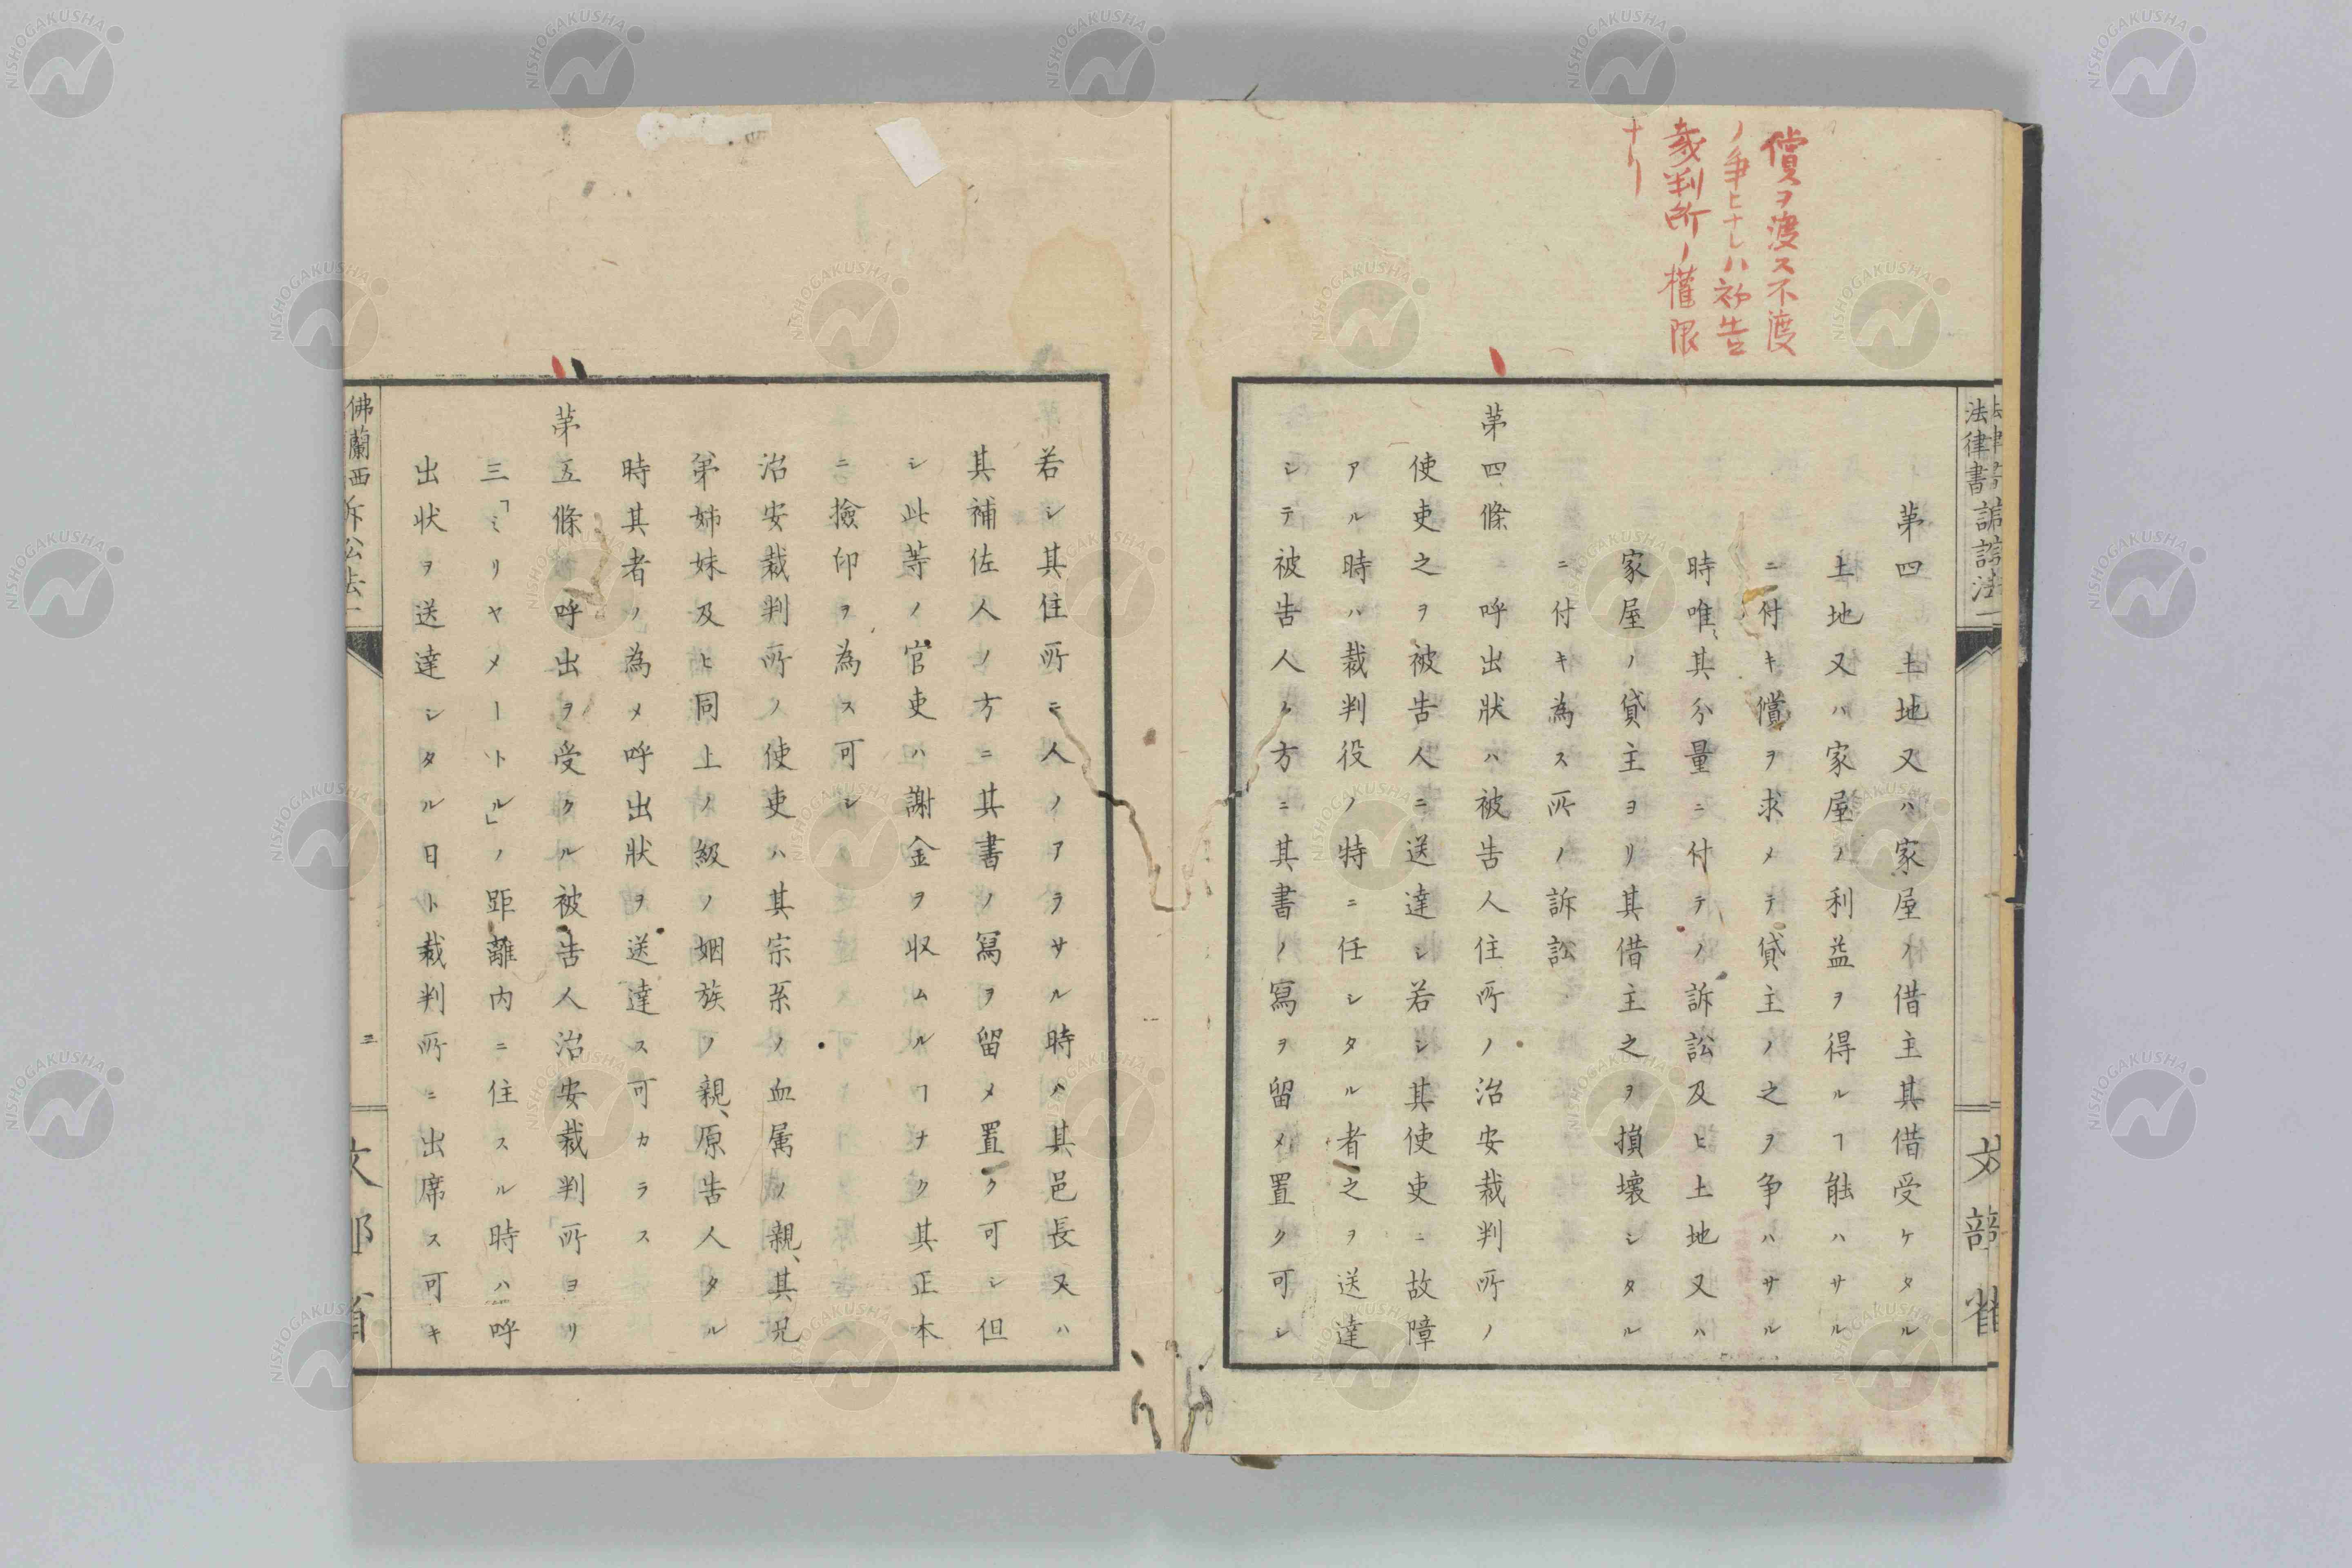 償ヲ渡ス不渡
ノ争ヒナレハ初告
裁判所ノ權限
ナリ
第四 土地又ハ家屋ノ借主其借受ケタル
土地又ハ家屋ノ利益ヲ得ルヿ能ハサル
ニ付キ償ヲ求メテ貸主ノ之ヲ争ハサル
時唯其分量ニ付テノ訴訟及ヒ土地又ハ
家屋ノ貸主ヨリ其借主之ヲ損壊シタル
ニ付キ為ス所ノ訴訟
第四條 呼出狀ハ被告人住所ノ治安裁判所ノ
使吏之ヲ被告人ニ送達シ若シ其使吏ニ故障
アル時ハ裁判役ノ特ニ任シタル者之ヲ送達
シテ被告人ノ方ニ其書ノ寫ヲ留メ置ク可シ
若シ其住所ニ人ノアラサル時ハ其邑長又ハ
其補佐人ノ方ニ其書ノ寫ヲ留メ置ク可シ但
シ此等ノ官吏ハ謝金ヲ収ムルヿナク其正本
ニ撿印ヲ為ス可シ
治安裁判所ノ使吏ハ其宗系ノ血属ノ親、其兄
弟姉妹及ヒ同上ノ級ノ姻族ノ親、原告人タル
時其者ノ為メ呼出狀ヲ送達ス可カラス
第五條 呼出ヲ受クル被告人治安裁判所ヨリ
三「ミリヤメートル」ノ距離内ニ住スル時ハ呼
出状ヲ送達シタル日ト裁判所ニ出席ス可キ
佛蘭西訴訟法一
三
文部省
NISHOGAKUSHA